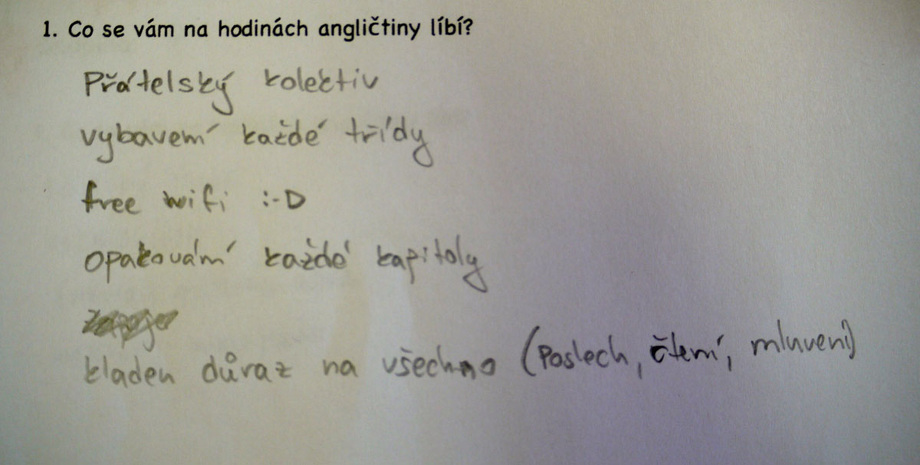 1. Co se vám na hodinách angličtiny líbí?
Přátelský kolektiv
vybavení každé třídy
free wifi :-D
opakování každé kapitoly
kladen důraz na všechno (Poslech, čtení, mluvení)